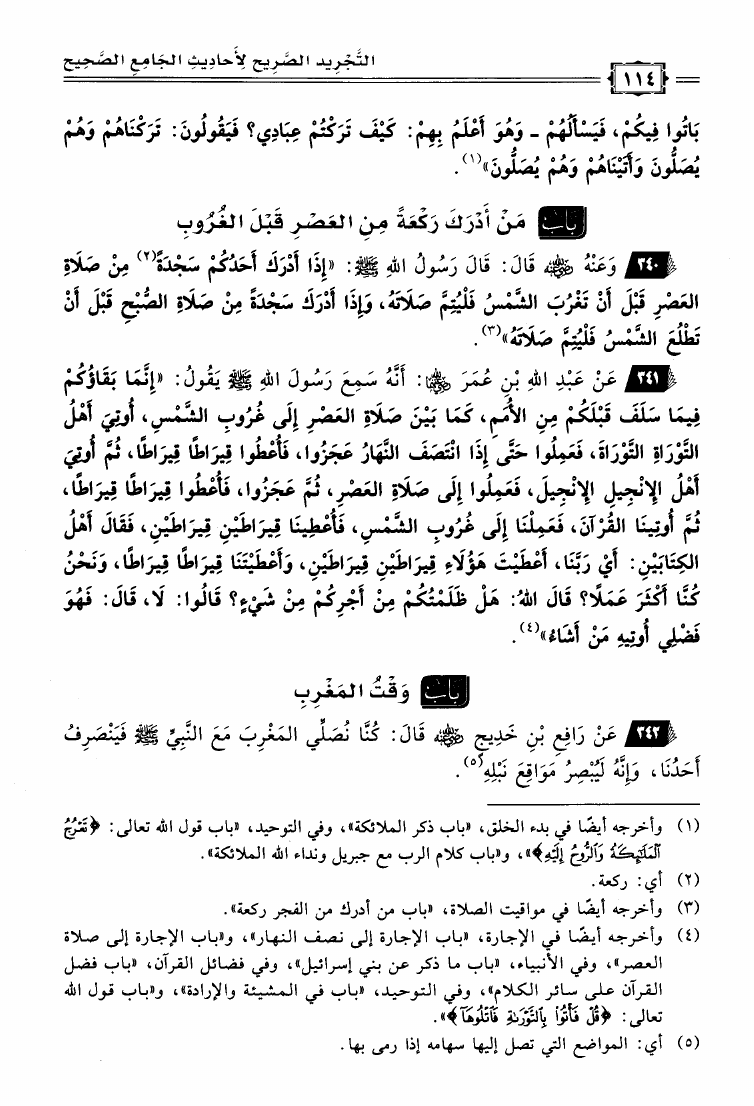 التَّجْرِيد الصَّرِيح لِأَحَادِيثِ الجَامِعِ الصَّحِيح
١١٤
بَاتُوا فِيكُمْ، فَيَسْأَلُهُمْ - وَهُوَ أَعْلَمُ بِهِمْ: كَيْفَ تَرَكْتُمْ عِبَادِي؟ فَيَقُولُونَ: تَرَكْنَاهُمْ وَهُمْ
يُصَلُّونَ وَأَتَيْنَاهُمْ وَهُمْ يُصَلُّونَ»(١).
بَاب مَنْ أَدْرَكَ رَكْعَةً مِنَ العَصْرِ قَبْلَ الغُرُوبِ
٣٤٠ وَعَنْهُ رضي الله عنه قَالَ: قَالَ رَسُولُ اللهِ ﷺ: «إِذَا أَدْرَكَ أَحَدُكُمْ سَجْدَةً(٢) مِنْ صَلَاةِ
العَصْرِ قَبْلَ أَنْ تَغْرُبَ الشَّمْسُ فَلْيُتِمَّ صَلَاتَهُ، وَإِذَا أَدْرَكَ سَجْدَةً مِنْ صَلَاةِ الصُّبْحِ قَبْلَ أَنْ
تَطْلُعَ الشَّمْسُ فَلْيُتِمَّ صَلَاتَهُ»(٣).
٣٤١ عَنْ عَبْدِ اللهِ بْنِ عُمَرَ رضي الله عنهما: أَنَّهُ سَمِعَ رَسُولَ اللهِ ﷺ يَقُولُ: «إِنَّمَا بَقَاؤُكُمْ
فِيمَا سَلَفَ قَبْلَكُمْ مِنَ الأُمَمِ، كَمَا بَيْنَ صَلَاةِ العَصْرِ إِلَى غُرُوبِ الشَّمْسِ، أُوتِيَ أَهْلُ
التَّوْرَاةِ التَّوْرَاةَ، فَعَمِلُوا حَتَّى إِذَا انْتَصَفَ النَّهَارُ عَجَزُوا، فَأُعْطُوا قِيرَاطًا قِيرَاطًا، ثُمَّ أُوتِيَ
أَهْلُ الإِنْجِيلِ الإِنْجِيلَ، فَعَمِلُوا إِلَى صَلَاةِ العَصْرِ، ثُمَّ عَجَزُوا، فَأُعْطُوا قِيرَاطًا قِيرَاطًا،
ثُمَّ أُوتِينَا القُرْآنَ، فَعَمِلْنَا إِلَى غُرُوبِ الشَّمْسِ، فَأُعْطِينَا قِيرَاطَيْنِ قِيرَاطَيْنِ، فَقَالَ أَهْلُ
الكِتَابَيْنِ: أَيْ رَبَّنَا، أَعْطَيْتَ هَؤُلَاءِ قِيرَاطَيْنِ قِيرَاطَيْنِ، وَأَعْطَيْتَنَا قِيرَاطًا قِيرَاطًا، وَنَحْنُ
كُنَّا أَكْثَرَ عَمَلًا؟ قَالَ اللهُ: هَلْ ظَلَمْتُكُمْ مِنْ أَجْرِكُمْ مِنْ شَيْءٍ؟ قَالُوا: لَا، قَالَ: فَهُوَ
فَضْلِي أُوتِيهِ مَنْ أَشَاءُ»(٤).
بَاب وَقْتُ المَغْرِبِ
٣٤٢ عَنْ رَافِعِ بْنِ خَدِيجٍ رضي الله عنه قَالَ: كُنَّا نُصَلِّي المَغْرِبَ مَعَ النَّبِيِّ ﷺ فَيَنْصَرِفُ
أَحَدُنَا، وَإِنَّهُ لَيُبْصِرُ مَوَاقِعَ نَبْلِهِ(٥).
(١) وأخرجه أيضًا في بدء الخلق، «باب ذكر الملائكة»، وفي التوحيد، «باب قول الله تعالى: ﴿تَعْرُجُ
ٱلْمَلَٰٓئِكَةُ وَٱلرُّوحُ إِلَيْهِ﴾»، و«باب كلام الرب مع جبريل ونداء الله الملائكة».
(٢) أي: ركعة.
(٣) وأخرجه أيضًا في مواقيت الصلاة، «باب من أدرك من الفجر ركعة».
(٤) وأخرجه أيضًا في الإجارة، «باب الإجارة إلى نصف النهار»، و«باب الإجارة إلى صلاة
العصر»، وفي الأنبياء، «باب ما ذكر عن بني إسرائيل»، وفي فضائل القرآن، «باب فضل
القرآن على سائر الكلام»، وفي التوحيد، «باب في المشيئة والإرادة»، و«باب قول الله
تعالى: ﴿قُلْ فَأْتُوا۟ بِٱلتَّوْرَىٰةِ فَٱتْلُوهَآ﴾».
(٥) أي: المواضع التي تصل إليها سهامه إذا رمى بها.